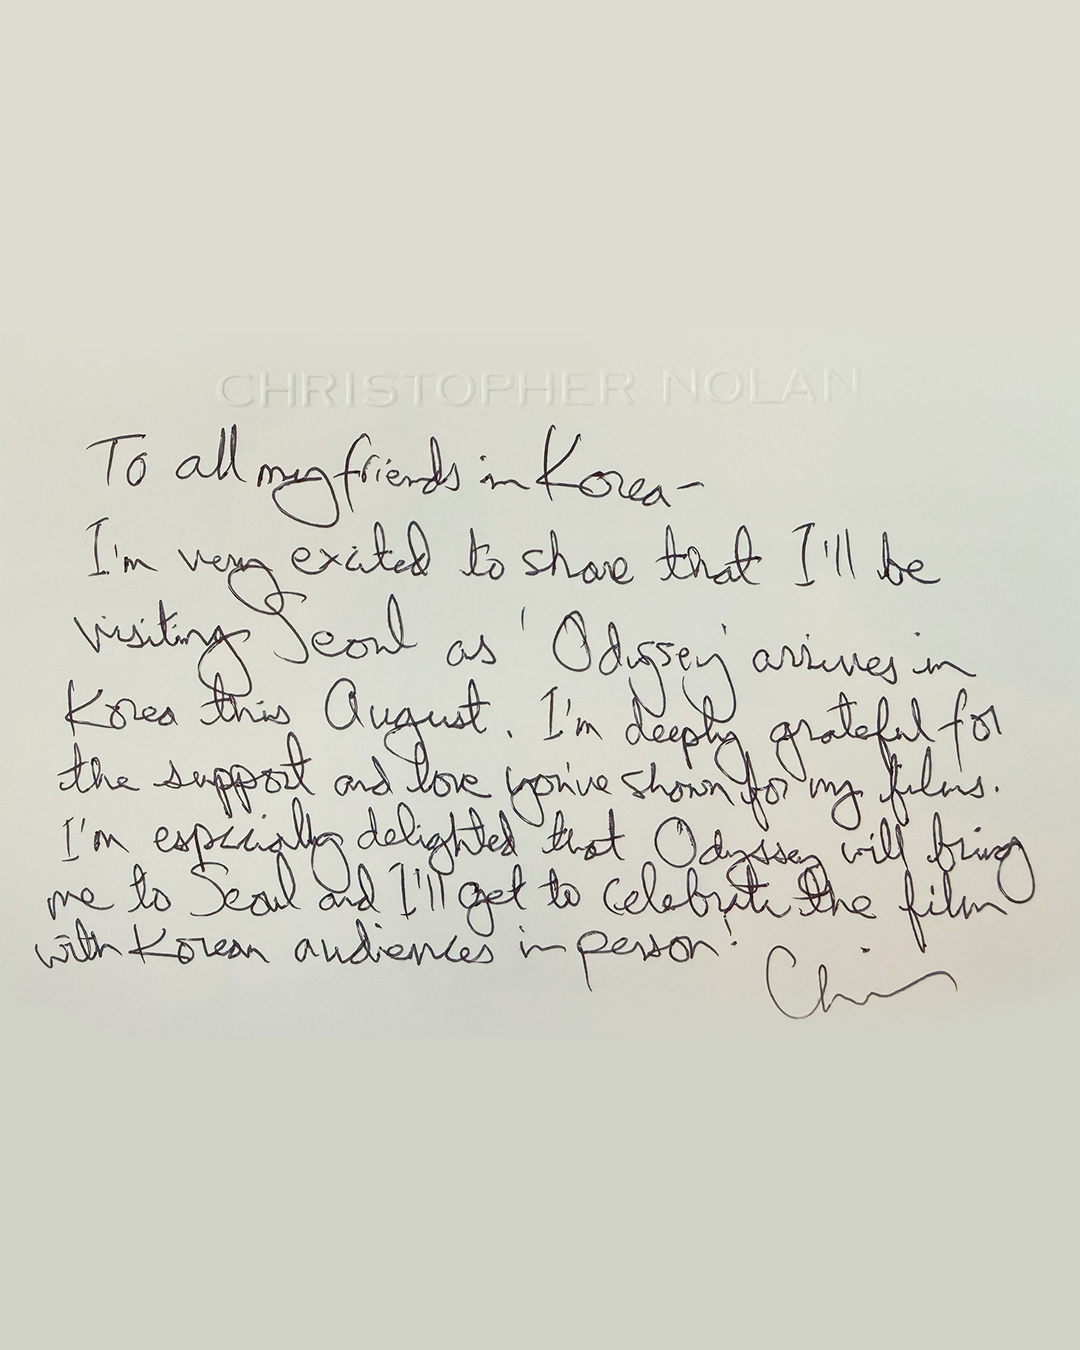 CHRISTOPHER NOLAN
To all my friends in Korea-
I'm very excited to share that I'll be
visiting Seoul as 'Odyssey' arrives in
Korea this August. I'm deeply grateful for
the support and love you've shown for my films.
I'm especially delighted that Odyssey will bring
me to Seoul and I'll get to celebrate the film
with Korean audiences in person!
Chris